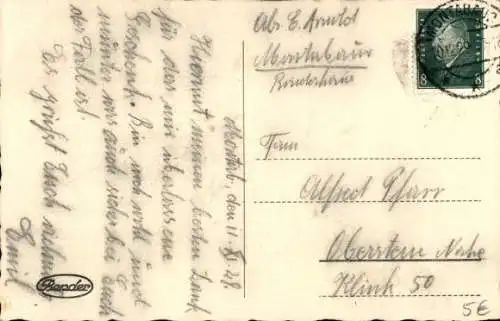 Abs. E. Arnold
Montabaur
MONTABAUR
8
Montab., den 11.
Hiermit meinen besten Dank
für das mir überlassene
Geschenk. Bin noch wohl und
munter was auch sicher bei Euch
der Fall ist!
Es grüßt Euch
Emil
Herrn
Alfred Pfarr
Oberstein Nahe
Klink 50
Bander
5€